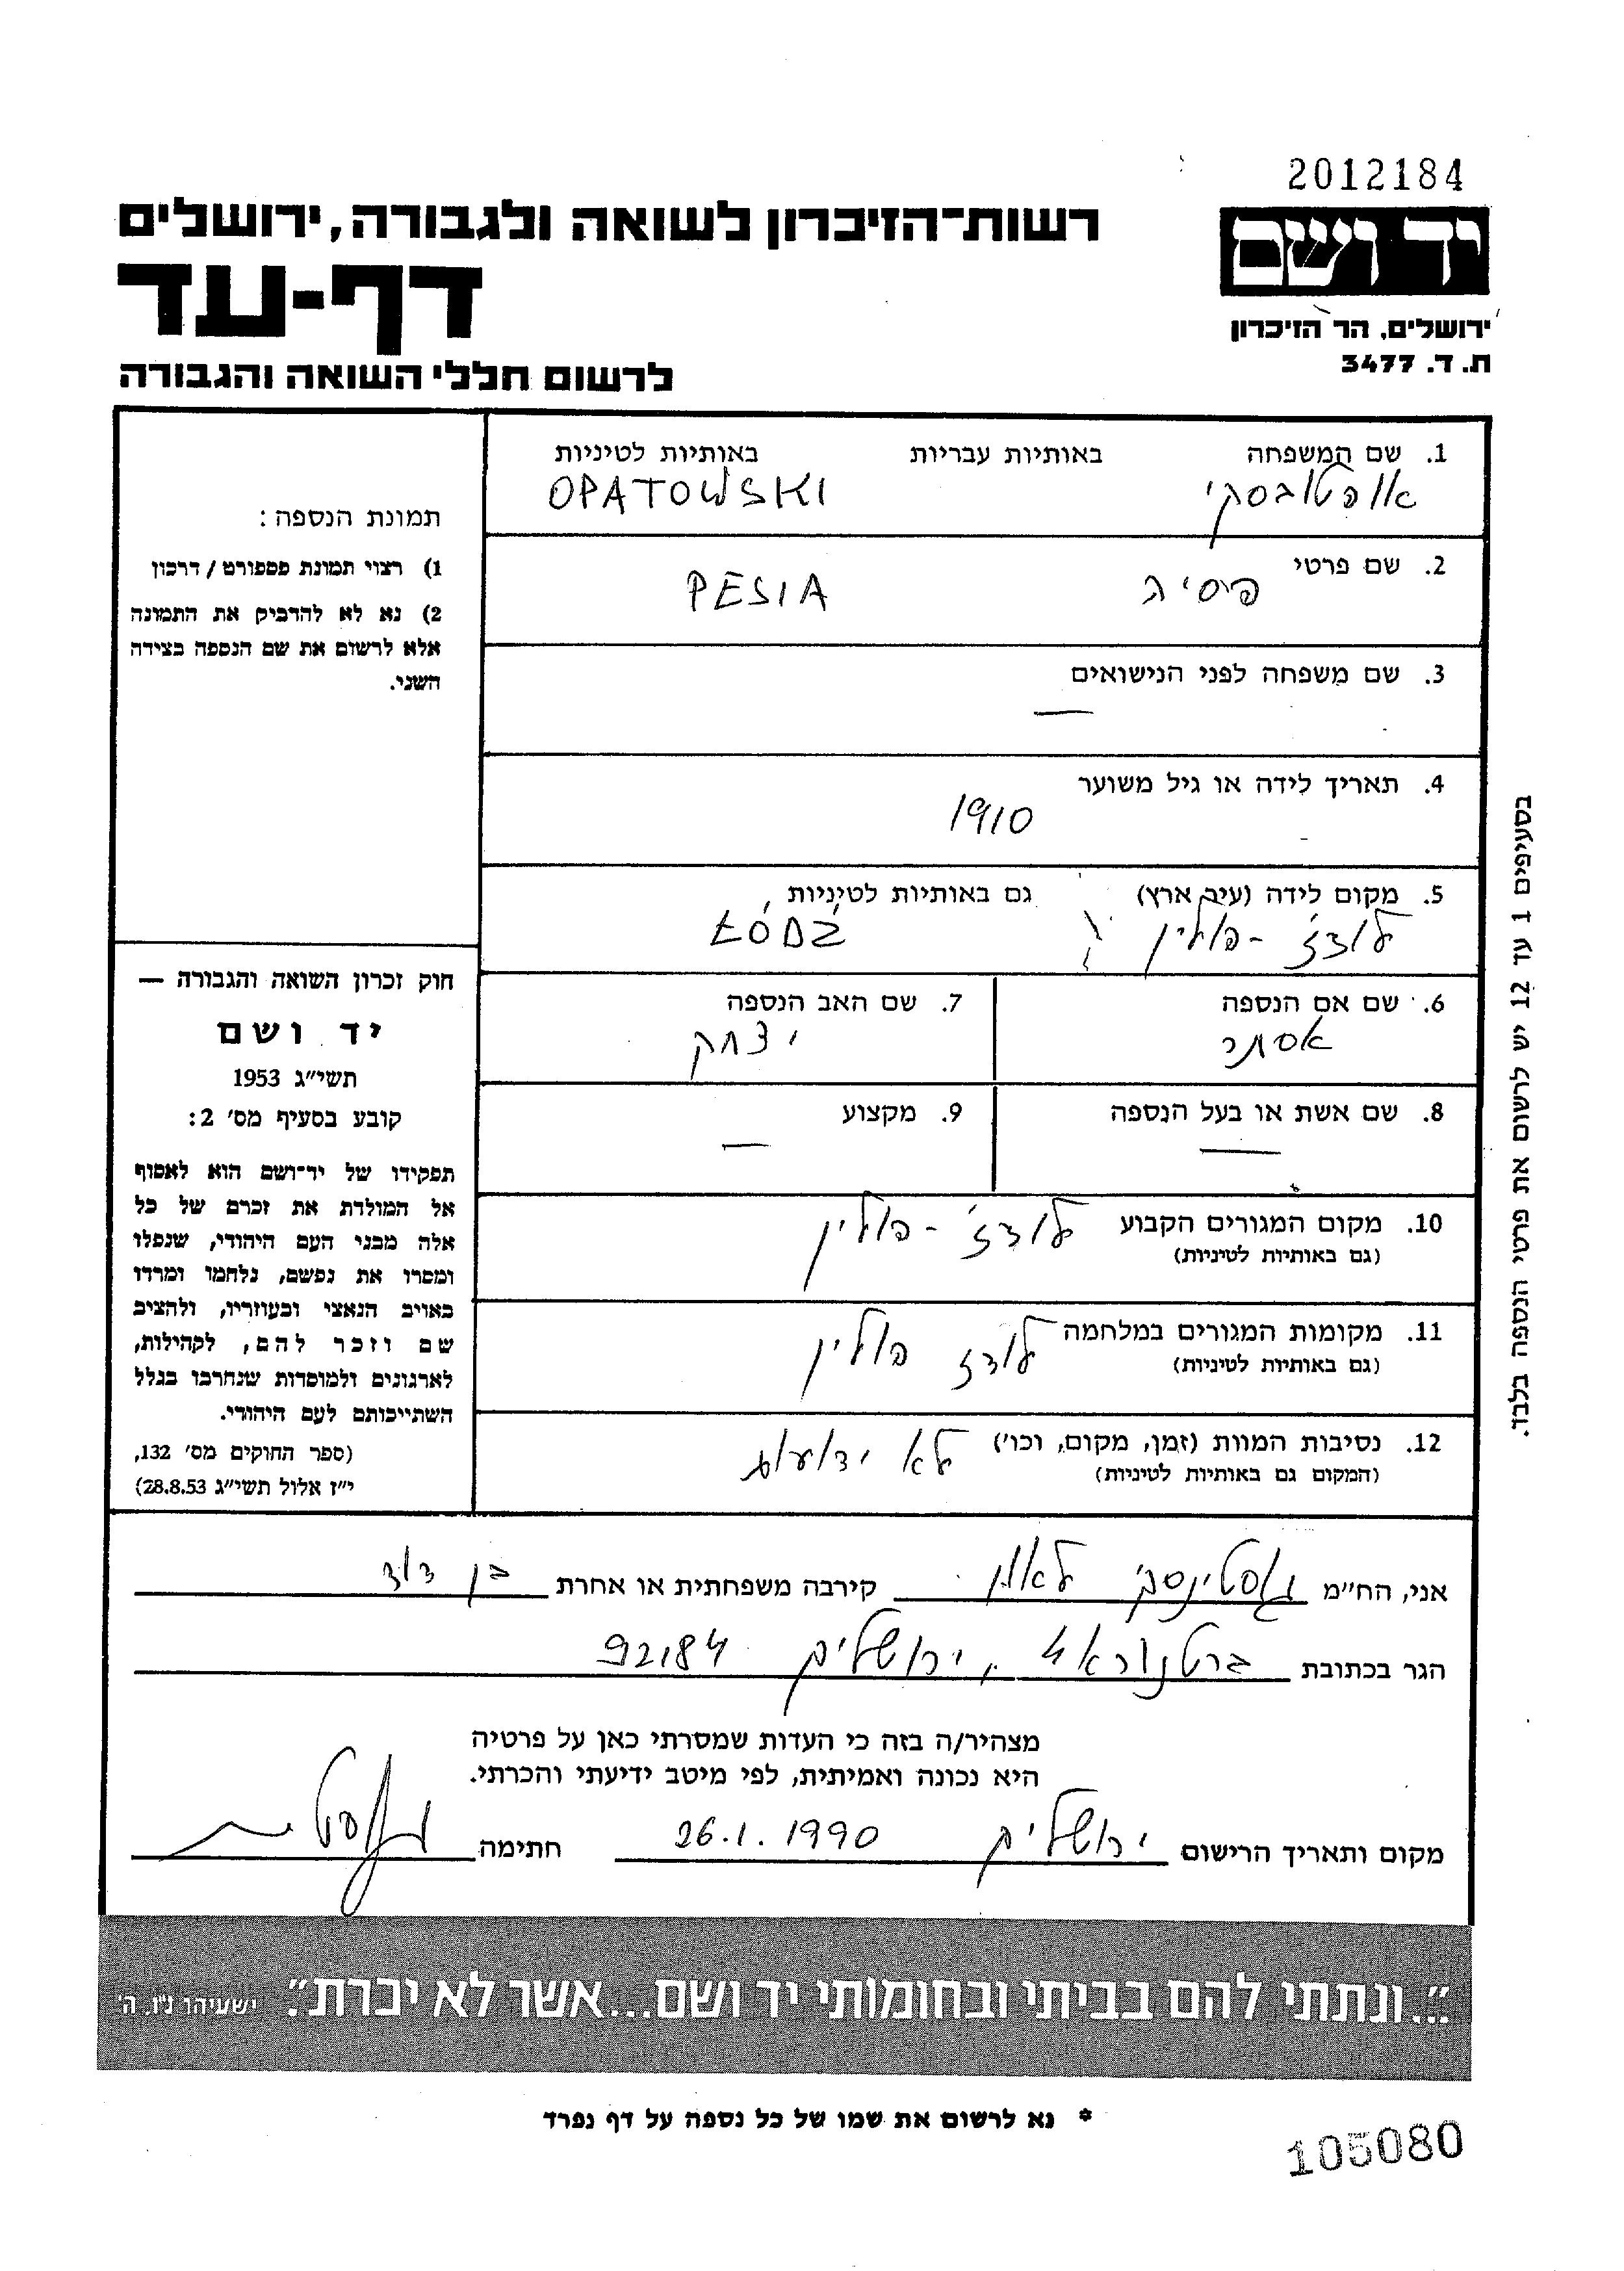 2012184
יד ושם
ירושלים, הר הזיכרון
ת. ד. 3477
רשות־הזיכרון לשואה ולגבורה, ירושלים
דף-עד
לרשום חללי השואה והגבורה
1. שם המשפחה באותיות עבריות באותיות לטיניות
אופטובסקי OPATOWSKI
2. שם פרטי
פסיה PESIA
3. שם משפחה לפני הנישואים
—
4. תאריך לידה או גיל משוער
1910
5. מקום לידה (עיר, ארץ) גם באותיות לטיניות
לודז' - פולין ŁÓDŹ
6. שם אם הנספה 7. שם האב הנספה
אסתר יצחק
8. שם אשת או בעל הנספה 9. מקצוע
— —
10. מקום המגורים הקבוע לודז' - פולין
(גם באותיות לטיניות)
11. מקומות המגורים במלחמה לודז פולין
(גם באותיות לטיניות)
12. נסיבות המוות (זמן, מקום, וכו') לא ידועות
(המקום גם באותיות לטיניות)
תמונת הנספה:
1) רצוי תמונת פספורט / דרכון
2) נא לא להדביק את התמונה
אלא לרשום את שם הנספה בצידה
השני.
חוק זכרון השואה והגבורה —
יד ושם
תשי"ג 1953
קובע בסעיף מס' 2:
תפקידו של יד־ושם הוא לאסוף
אל המולדת את זכרם של כל
אלה מבני העם היהודי, שנפלו
ומסרו את נפשם, נלחמו ומרדו
באויב הנאצי ובעוזריו, ולהציב
שם וזכר להם, לקהילות,
לארגונים ולמוסדות שנחרבו בגלל
השתייכותם לעם היהודי.
(ספר החוקים מס' 132,
י"ז אלול תשי"ג 28.8.53)
בסעיפים 1 עד 12 יש לרשום את פרטי הנספה בלבד.
אני, הח"מ גוסטינסקי לאון קירבה משפחתית או אחרת בן דוד
הגר בכתובת ברטנורא 4, ירושלים 92184
מצהיר/ה בזה כי העדות שמסרתי כאן על פרטיה
היא נכונה ואמיתית, לפי מיטב ידיעתי והכרתי.
מקום ותאריך הרישום ירושלים 26.1.1990 חתימה
"...ונתתי להם בביתי ובחומותי יד ושם...אשר לא יכרת". ישעיהו נ"ו, ה'
* נא לרשום את שמו של כל נספה על דף נפרד
105080